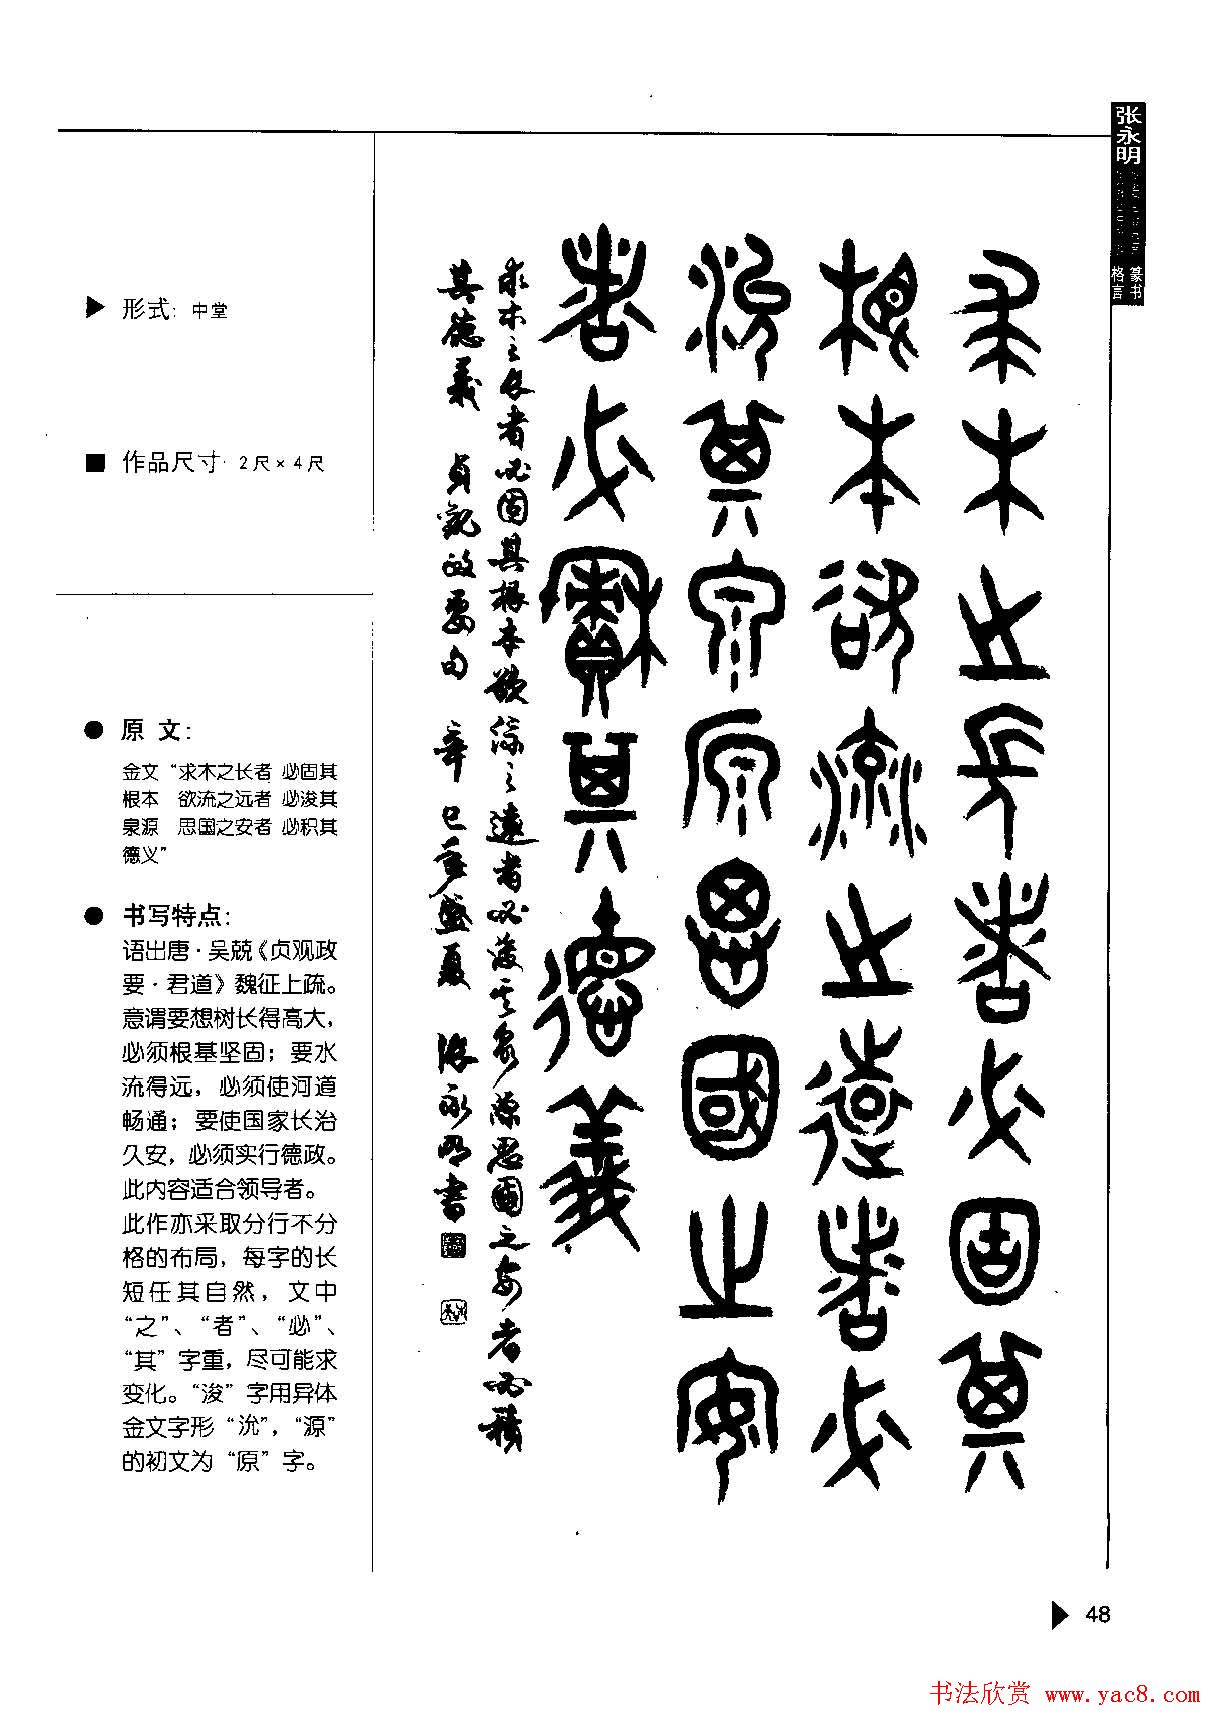 张永明
篆书
格言
形式: 中堂
作品尺寸: 2尺×4尺
原 文:
金文“求木之长者 必固其
根本 欲流之远者 必浚其
泉源 思国之安者 必积其
德义”
书写特点:
语出唐·吴兢《贞观政
要·君道》魏征上疏。
意谓要想树长得高大，
必须根基坚固；要水
流得远，必须使河道
畅通；要使国家长治
久安，必须实行德政。
此内容适合领导者。
此作亦采取分行不分
格的布局，每字的长
短任其自然，文中
“之”、“者”、“必”、
“其”字重，尽可能求
变化。“浚”字用异体
金文字形“沇”，“源”
的初文为“原”字。
求木之長者必固其
根本欲流之遠者必
沇其泉原思國之安
者必積其德義
求木之長者必固其根本欲流之遠者必浚其泉源思國之安者必積
其德義 貞觀政要句 辛巳年盛夏 張永明書
48
书法欣赏 www.yac8.com